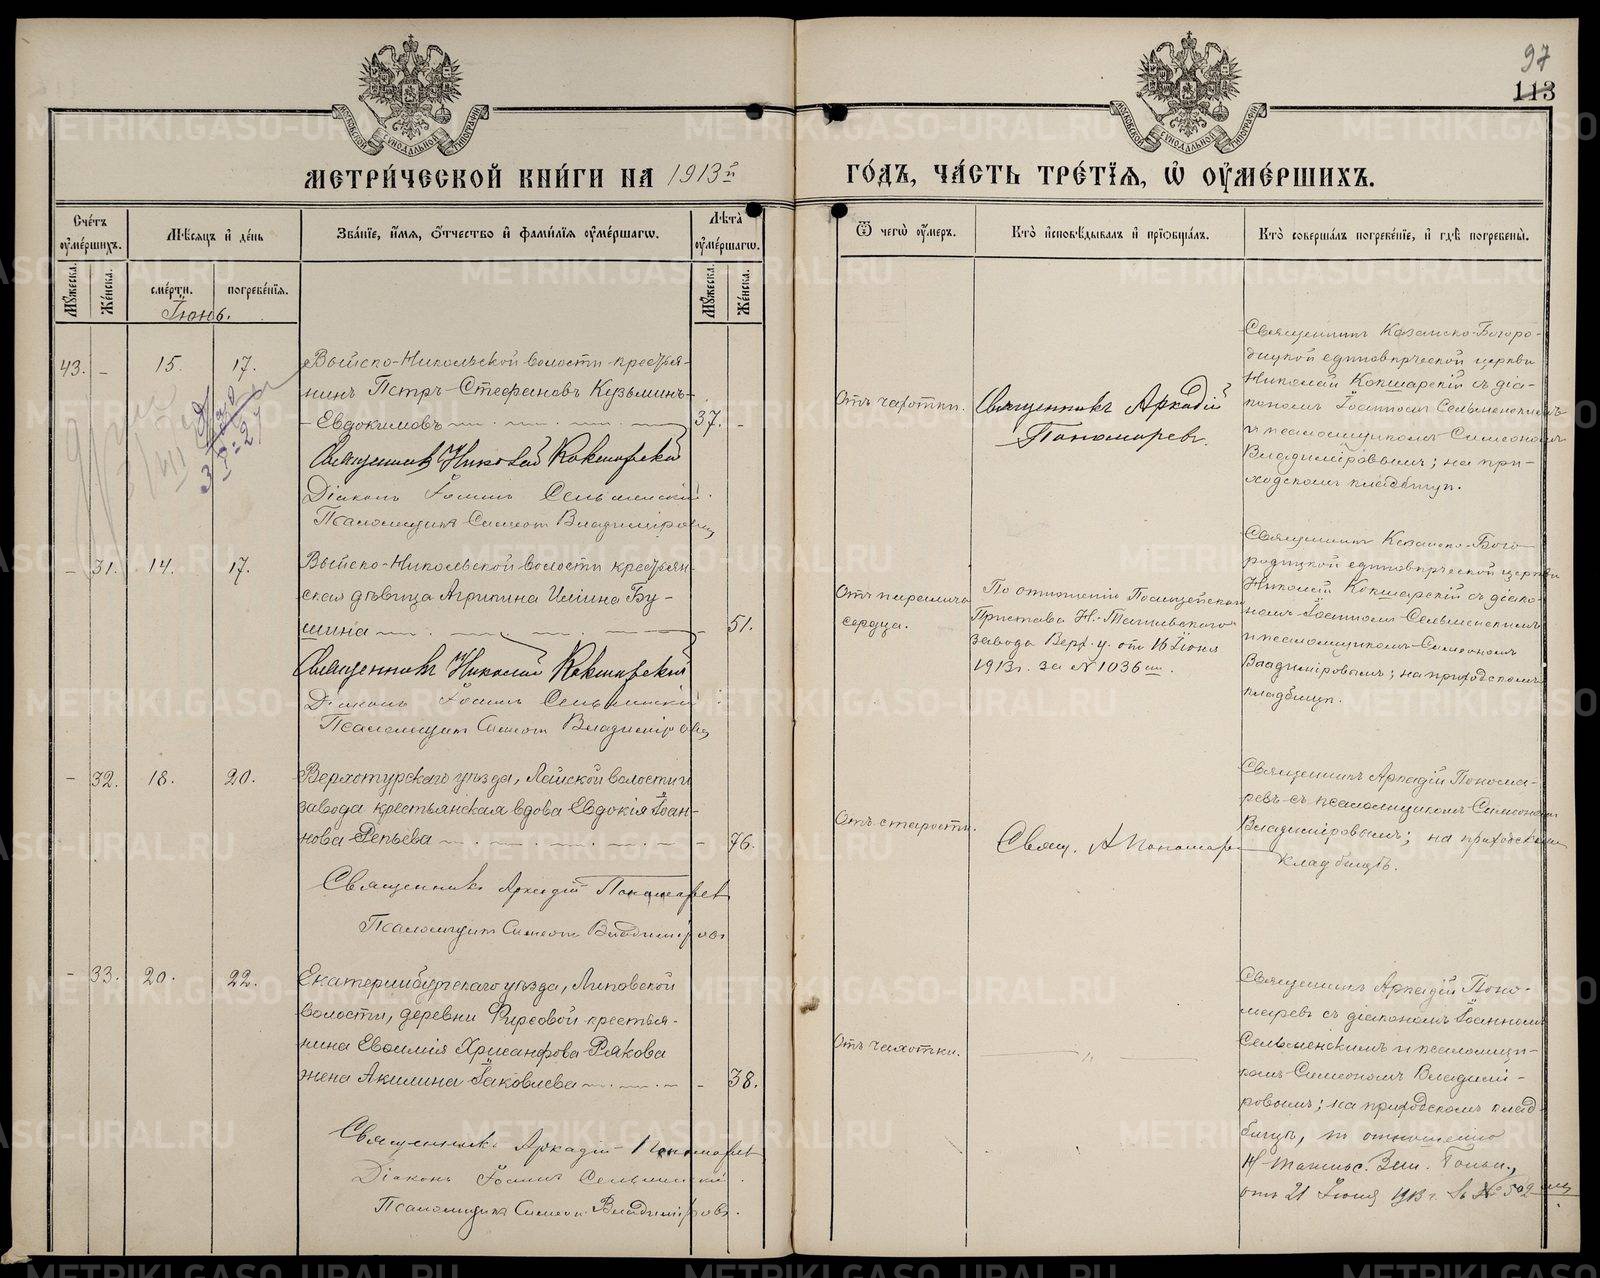 97
113
МЕТРИ́ЧЕСКОЙ КНИ́ГИ НА 1913й
ГО́ДЪ, ЧА́СТЬ ТРЕ́ТІЯ, Ѽ ОУ҆МЕ́РШИХЪ.
Сче́тъ оу҆ме́ршихъ.
Мѣ́сяцъ и҆ де́нь
Зва́нїе, и҆́мя, ѻ҆́тчество и҆ фами́лїя оу҆ме́ршагѡ.
Лѣ́та оу҆ме́ршагѡ.
Ѿ чегѡ̀ оу҆́меръ.
Кто̀ и҆сповѣ́дывалъ и҆ прїѡбща́лъ.
Кто̀ соверша́лъ погребе́нїе, и҆ гдѣ̀ погребены̀.
Мꙋ́жеска.
Же́нска.
сме́рти.
погребе́нїя.
Мꙋ́жеска.
Же́нска.
Іюнь.
43. - 15. 17.
Выйско-Никольской волости крестья-
нинъ Петръ Стефановъ Кузьминъ-
- Евдокимовъ
37. -
Священникъ Николай Кокшарскій
Діаконъ Іоаннъ Сельменскій.
Псаломщикъ Симеонъ Владиміровъ
Отъ чахотки.
Священникъ Аркадій
Пономаревъ.
Священникъ Казанско-Богоро-
дицкой единовѣрческой церкви
Николай Кокшарскій съ діа-
кономъ Іоанномъ Сельменскимъ
и псаломщикомъ Симеономъ
Владиміровымъ; на при-
ходскомъ кладбищѣ.
- 31. 14. 17.
Выйско-Никольской волости крестьян-
ская дѣвица Агрипина Иліина Бу-
шина
- 51.
Священникъ Николай Кокшарскій
Діаконъ Іоаннъ Сельменскій.
Псаломщикъ Симеонъ Владиміровъ
Отъ паралича
сердца.
По отношенію Полицейскаго
Пристава Н.-Тагильскаго
завода Верх. у. отъ 16 Іюня
1913 г. за № 1036
Священникъ Казанско-Бого-
родицкой единовѣрческой церкви
Николай Кокшарскій съ діако-
номъ Іоанномъ Сельменскимъ
и псаломщикомъ Симеономъ
Владиміровымъ; на приходскомъ
кладбищѣ.
- 32. 18. 20.
Верхотурскаго уѣзда, Лайской волости и
завода крестьянская вдова Евдокія Іоан-
нова Репьева
- 76.
Священникъ Аркадій Пономаревъ
Псаломщикъ Симеонъ Владиміровъ
Отъ старости.
Свящ. А Пономарев
Священникъ Аркадій Понома-
ревъ съ псаломщикомъ Симеономъ
Владиміровымъ; на приходскомъ
кладбищѣ.
- 33. 20. 22.
Екатеринбургскаго уѣзда, Липовской
волости, деревни Фирсовой крестья-
нина Евѳимія Хрисанфова Рякова
жена Акилина Іаковлева
- 38.
Священникъ Аркадій Пономаревъ
Діаконъ Іоаннъ Сельменскій.
Псаломщикъ Симеонъ Владиміровъ.
Отъ чахотки.
— „ —
Священникъ Аркадій Поно-
маревъ съ діакономъ Іоанномъ
Сельменскимъ и псаломщи-
комъ Симеономъ Владимі-
ровымъ; на приходскомъ клад-
бищѣ, по отношенію
Н-Тагильс. Зем. Больн.,
отъ 21 Іюня 1913 г. за № 502
METRIKI.GASO-URAL.RU